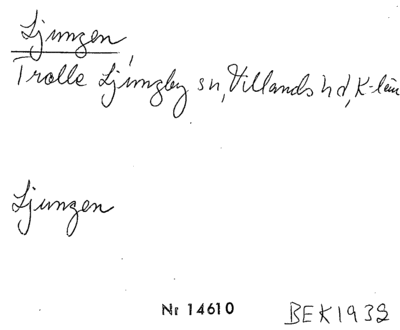 Ljungen,
Trolle Ljungby sn, Villands hd, K-län
Ljungen
Nr 14610 BEK1932